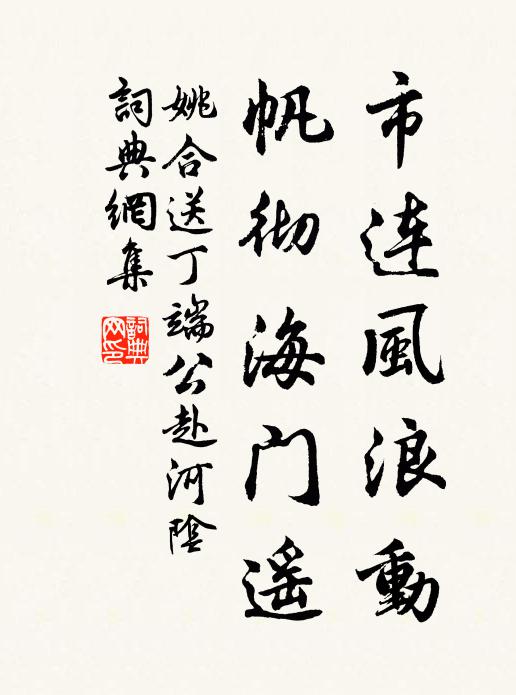 市连風浪動
帆彻海门遥
姚合送丁端公赴河陰
詞典網集
詞典网印